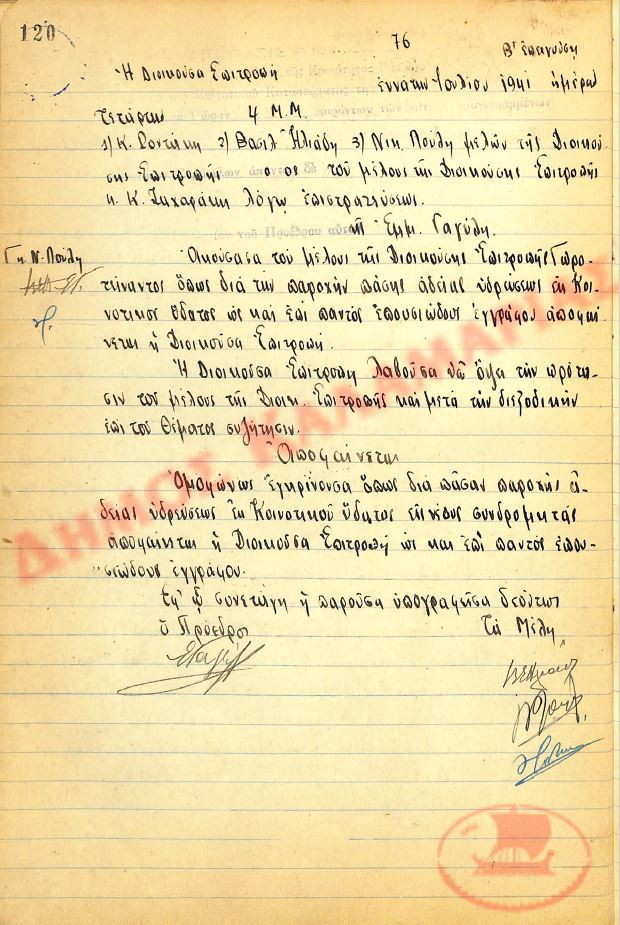 120
76
Β' ἐπαγύσῃ
Ἡ Διοικοῦσα Ἐπιτροπὴ
ἐννάτην Ἰουλίου 1941 ἡμέραν
Τετάρτην 4 Μ.Μ.
1) Κ. 2) Βασιλ. Ἠλιάδη 3) Νικ. Πούλη μελῶν τῆς Διοικού-
σης Ἐπιτροπῆς ο ος τοῦ μέλους τῆς Διοικούσης Ἐπιτροπῆς
κ. Κ. Ζαχαράκη λόγῳ ἐπιστρατεύσεως.
τοῦ Προέδρου αὐτῆς Ἐμμ. Γαγύλη.
Γν. Ν. Πούλη
Ἀκούσασα τοῦ μέλους τῆς Διοικούσης Ἐπιτροπῆς προ-
τείναντος ὅπως διὰ τὴν παροχὴν πάσης ἀδείας ὑδρεύσεως ἐκ Κοι-
νοτικοῦ ὕδατος ὡς καὶ ἐπὶ παντὸς ἐπουσιώδους ἐγγράφου ἀποφαί-
νεται ἡ Διοικοῦσα Ἐπιτροπή.
Ἡ Διοικοῦσα Ἐπιτροπὴ λαβοῦσα ὑπ' ὄψει τὴν πρότα-
σιν τοῦ μέλους τῆς Διοικ. Ἐπιτροπῆς καὶ μετὰ τὴν διεξοδικὴν
ἐπὶ τοῦ θέματος συζήτησιν.
Ἀποφαίνεται
Ὁμοφώνως ἐγκρίνουσα ὅπως διὰ πᾶσαν παροχὴν ἀ-
δείας ὑδρεύσεως ἐκ Κοινοτικοῦ ὕδατος εἰς νέους συνδρομητὰς
ἀποφαίνεται ἡ Διοικοῦσα Ἐπιτροπὴ ὡς καὶ ἐπὶ παντὸς ἐπου-
σιώδους ἐγγράφου.
Ἐφ' ᾧ συνετάγη ἡ παροῦσα ὑπογραφεῖσα δεόντως
ὁ Πρόεδρος Τὰ Μέλη
ΔΗΜΟΣ ΚΑΛΑΜΑΡΙΑΣ